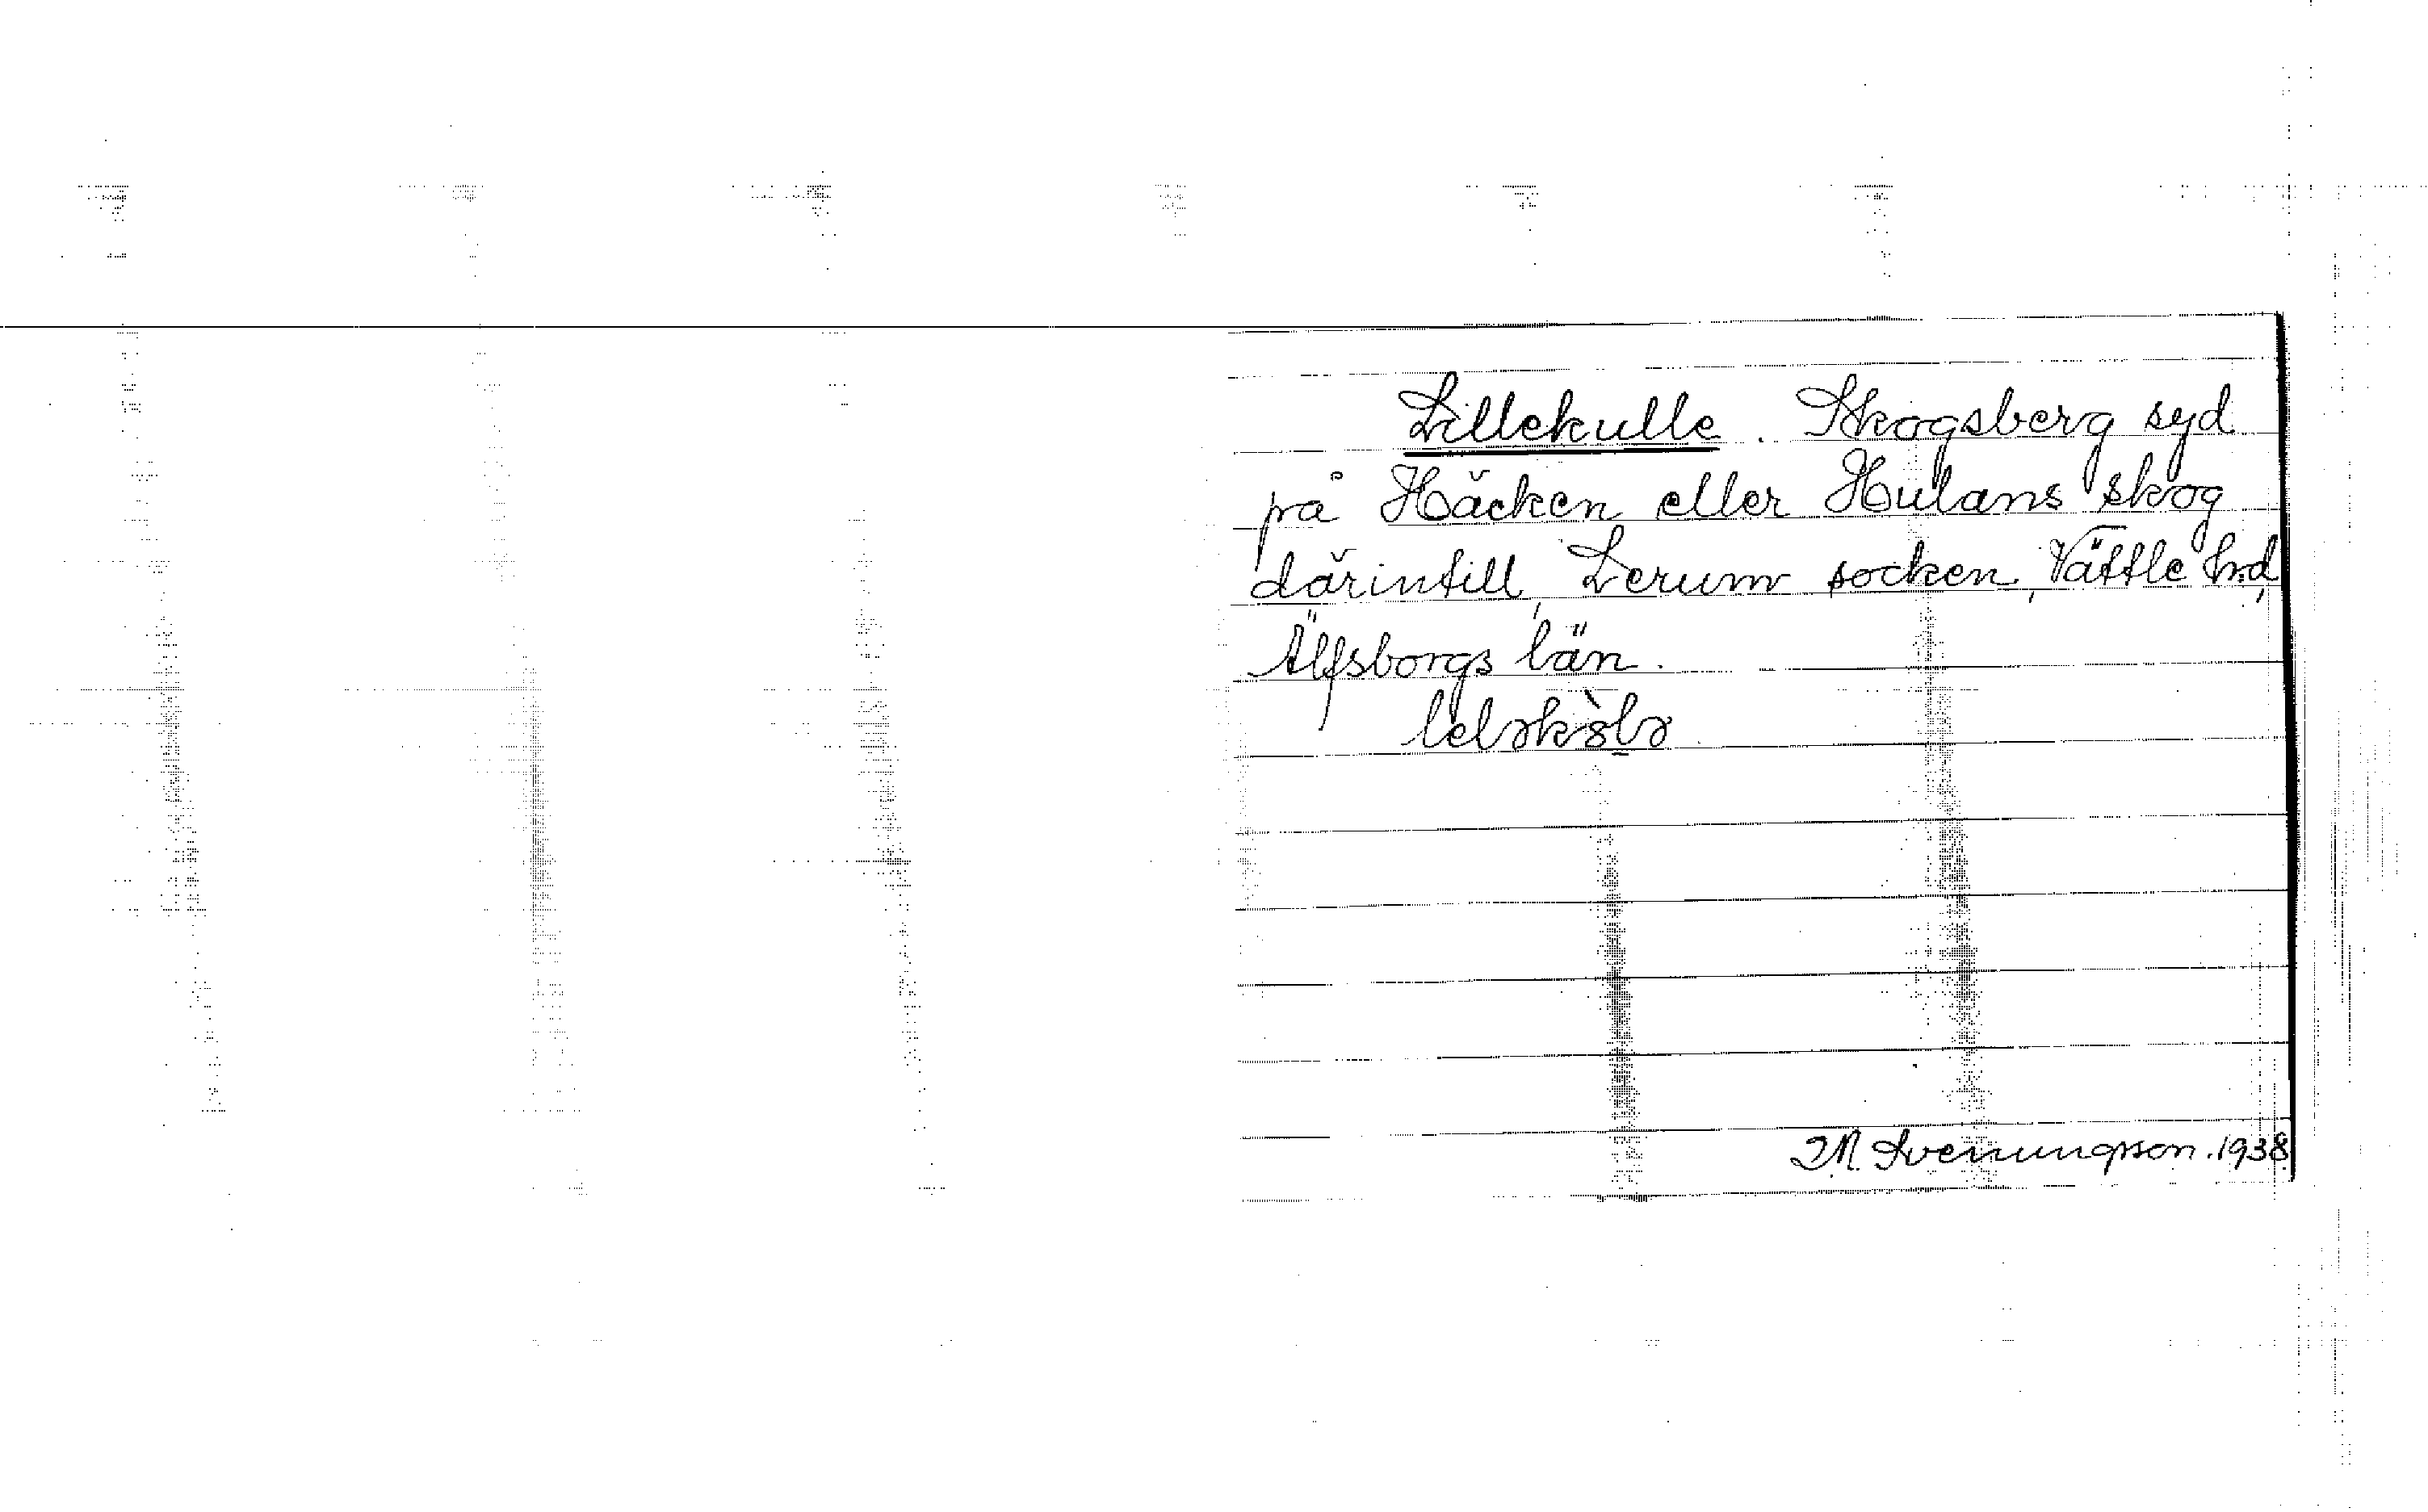 Lillekulle. Skogsberg syd
på Häcken eller Hulans skog
därintill, Lerum socken, Vättle hd,
Älfsborgs län.
Svenungsson. 1938